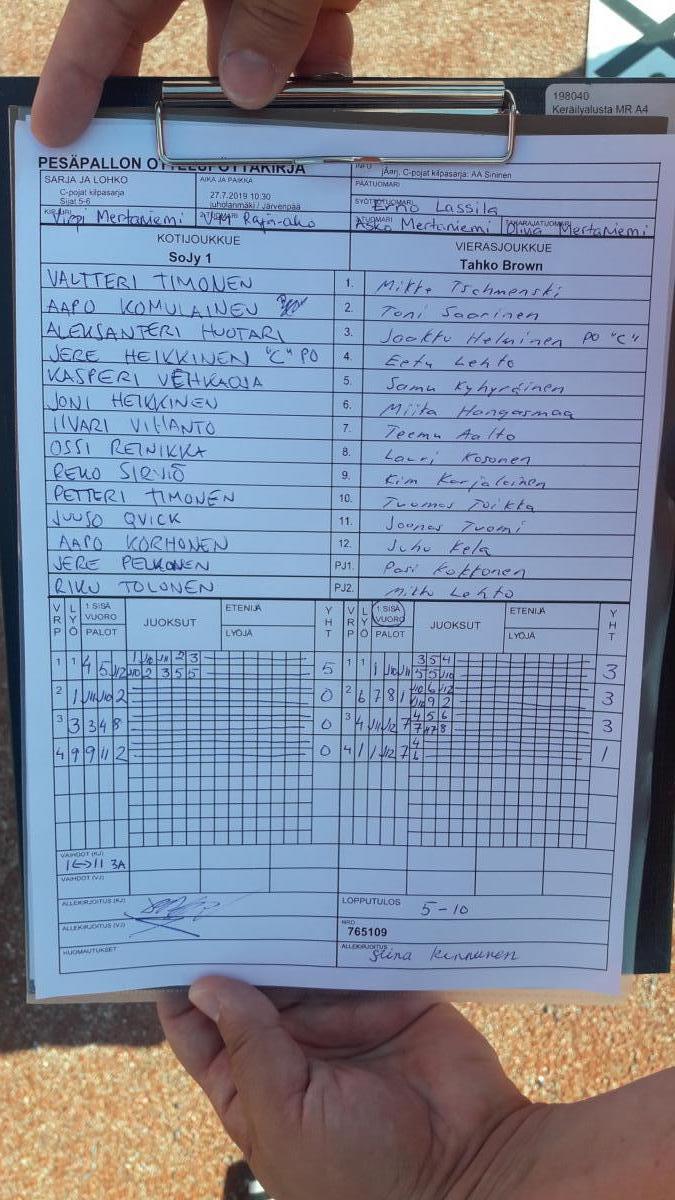 198040
Keräilyalusta MR A4
PESÄPALLON OTTELUPÖYTÄKIRJA
SARJA JA LOHKO
C-pojat kilpasarja
Sijat 5-6
AIKA JA PAIKKA
27.7.2019 10:30
juholanmäki / Järvenpää
INFO
jÄarj. C-pojat kilpasarja: AA Sininen
PÄÄTUOMARI
SYÖTTÖTUOMARI Erno Lassila
KIRJURI Virpi Mertaniemi
2-TUOMARI
3-TUOMARI Asko Mertaniemi
TAKARAJATUOMARI Oliva Mertaniemi
KOTIJOUKKUE
SoJy 1
VIERASJOUKKUE
Tahko Brown
VALTTERI TIMONEN 1. Mikke Tschmenski
AAPO KOMULAINEN 2. Toni Saarinen
ALEKSANTERI HUOTARI 3. Jaakku Helminen PO "C"
JERE HEIKKINEN "C" PO 4. Eetu Lehto
KASPERI VEHKAOJA 5. Samu Kyhyräinen
JONI HEIKKINEN 6. Miita Hangasmaa
IIVARI VIITANTO 7. Teemu Aalto
OSSI REINIKKA 8. Lauri Kosonen
REKO SIRVIÖ 9. Kim Karjalainen
PETTERI TIMONEN 10. Tuomas Toikka
JUUSO QVICK 11. Joonas Tuomi
AAPO KORHONEN 12. Juho Kela
JERE PELKONEN PJ1. Pasi Kokkonen
RIKU TOLONEN PJ2. Mikko Lehto
VRP LYÖ 1 SISÄ VUORO PALOT JUOKSUT ETENIJÄ LYÖJÄ YHT VRP LYÖ 1 SISÄ VUORO PALOT JUOKSUT ETENIJÄ LYÖJÄ YHT
1 1 4 5 J12 1 J10 J11 2 3 5 1 1 1 J10 J11 3 5 4 3
J10 2 3 5 5 5 5 J10
2 1 J11 J10 2 0 2 6 7 8 1 J10 6 J12 3
J10 9 2
3 3 3 4 8 0 3 4 J11 J12 7 4 5 6 3
7 J17 8
4 9 9 11 2 0 4 1 1 J12 7 4 1
6
VAIHDOT (KJ)
1<->11 3A
VAIHDOT (VJ)
ALLEKIRJOITUS (KJ)
LOPPUTULOS 5-10
ALLEKIRJOITUS (VJ)
NRO
765109
HUOMAUTUKSET
ALLEKIRJOITUS
Siina Kinnunen